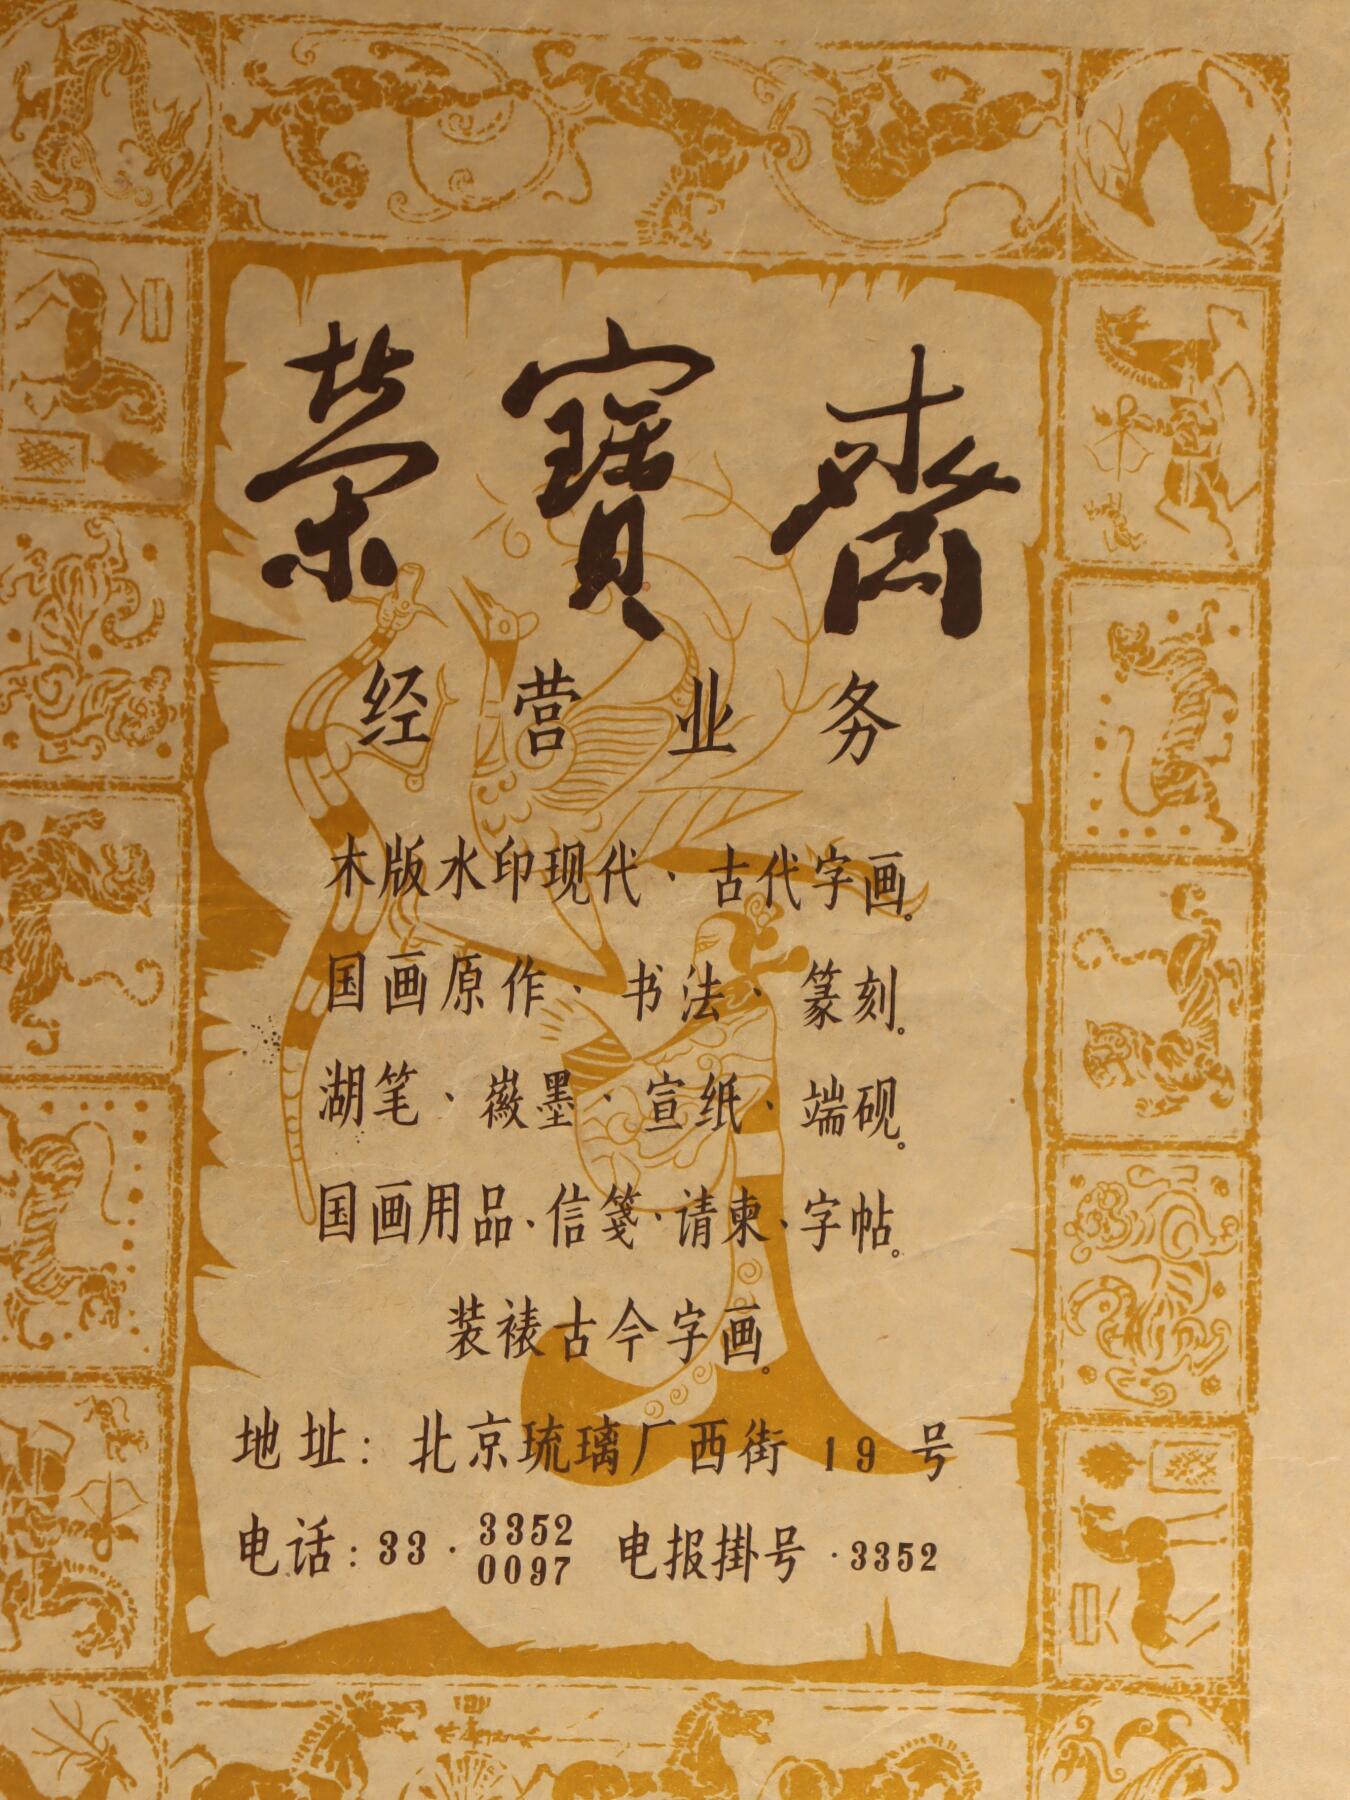 荣寳斋
经营业务
木版水印现代·古代字画。
国画原作·书法·篆刻。
湖笔·徽墨·宣纸·端砚。
国画用品·信笺·请柬·字帖。
装裱古今字画。
地址：北京琉璃厂西街 19 号
电话：33·3352 0097 电报掛号·3352